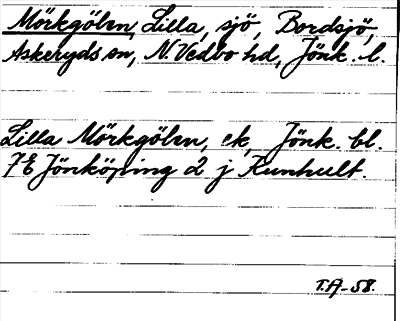 Mörkgölen, Lilla, sjö, Bordsjö,
Askeryds sn, N. Vedbo hd, Jönk. l.
Lilla Mörkgölen, ek, Jönk. bl.
7E Jönköping 2 j Kunhult.
T.A-58.